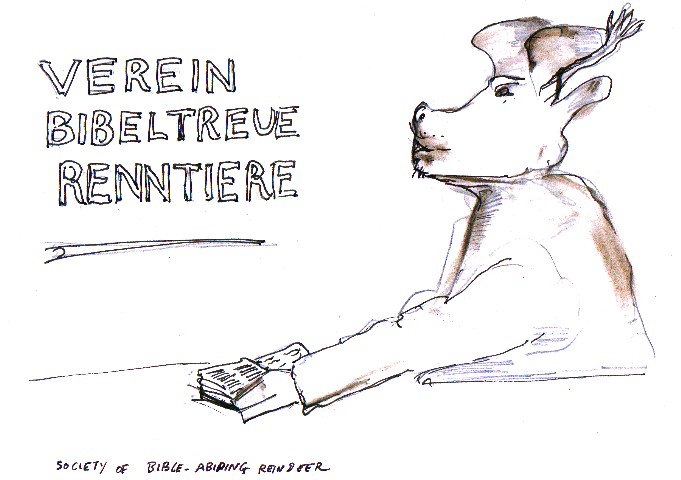 VEREIN
BIBELTREUE
RENNTIERE
SOCIETY OF BIBLE-ABIDING REINDEER